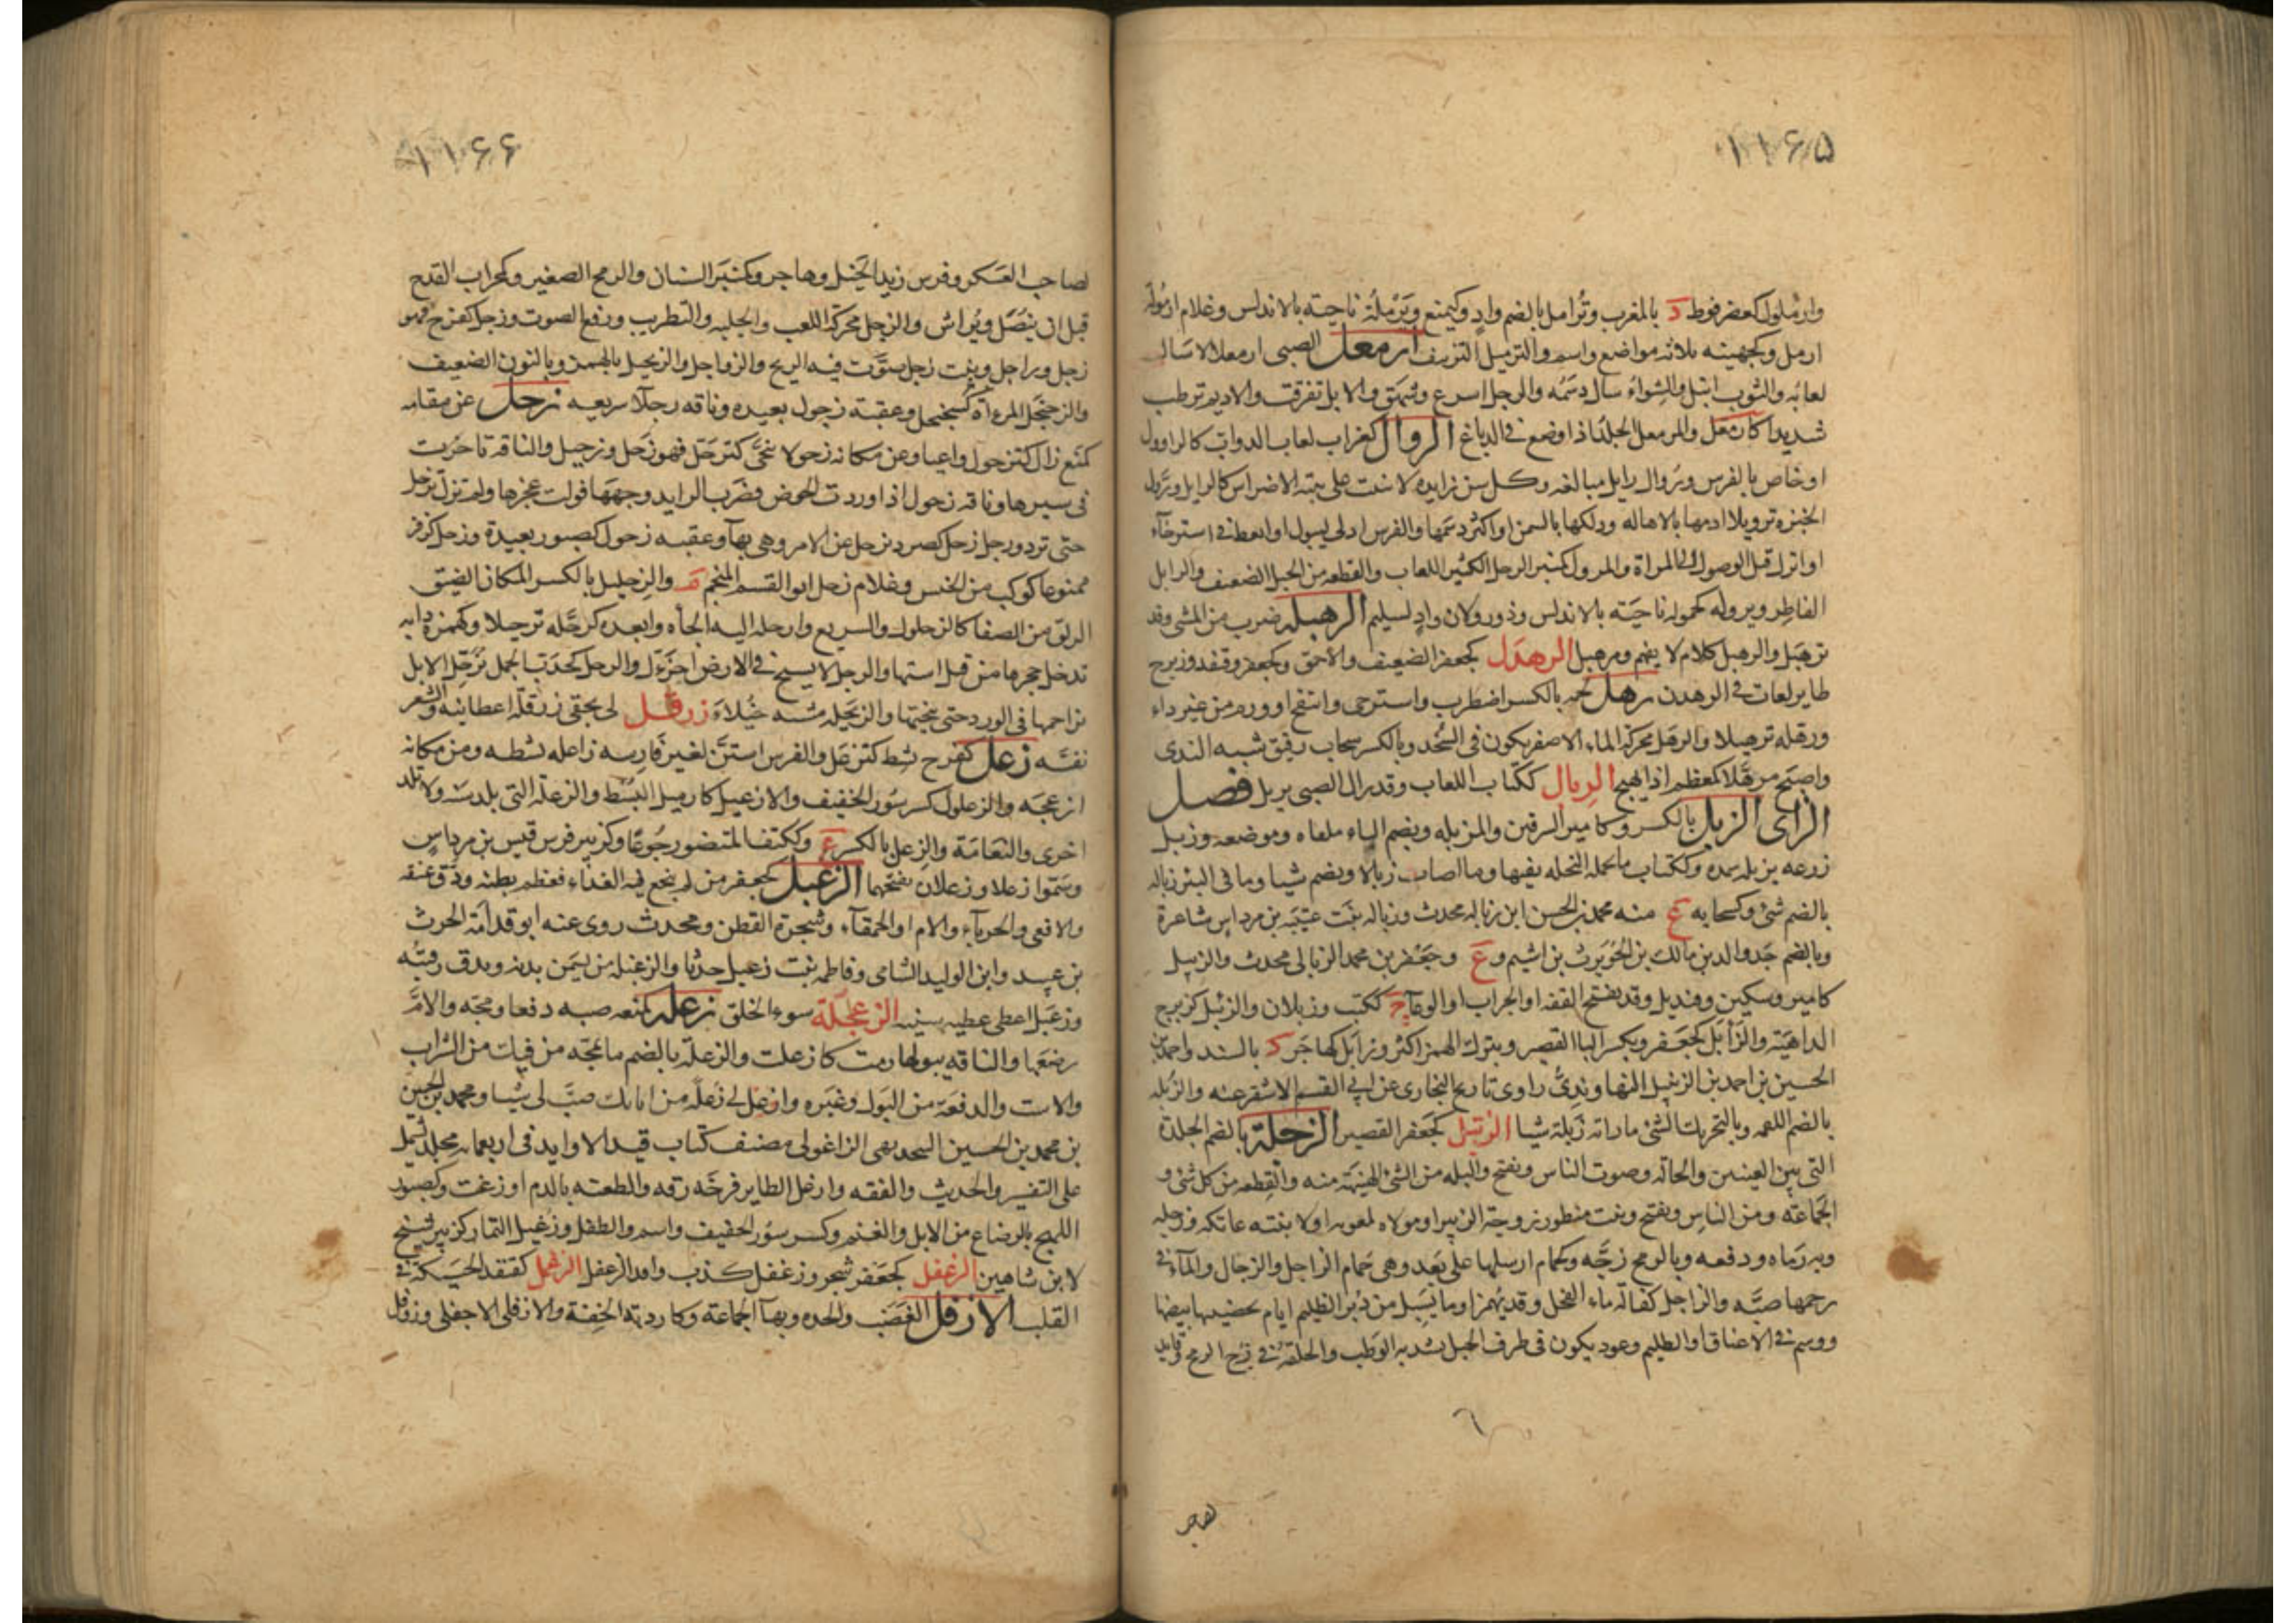 ۱۱۶۵
وارملول كعضرفوط د بالمغرب وترامل بالضم واد وكيمنع ويرملة ناحيته بالاندلس وغلام ارمولة
ارمل وكجهينه ثلاثه مواضع واسم والترميل التزييف ارمعل الصبى ارمعلالا سال
لعابه والثوب ابتل والشواء سال دسمه والرجل اسرع وشهق والابل تفرقت والاديم ترطب
شديدا كارمغل والمرمعل الجلد اذا وضع فى الدباغ الروال كغراب لعاب الدواب كالراوول
او خاص بالفرس وروال رايل مبالغه وكل سن زايده لا تنبت على نبتة الاضراس كالرايل ورول
الخبزه ترويلا ادمها بالاهاله ودلكها بالسمن او اكثر دسمها والفرس ادلى ليبول او انعظ فى استرخاء
او انزل قبل الوصول الى المراة والمرول كمنبر الرجل الكثير اللعاب والقطعه من الحبل الضعيف والرايل
القاطر ويروله كحموله ناحيته بالاندلس وذو رولان واد لسليم الرهبله ضرب من المشى وقد
ترهبل والرهبل كلام لا يفهم ومرهبل الرهدل كجعفر الضعيف والاحمق وكجعفر وقنفذ وزبرج
طاير لغات فى الرهدن رهل لحمه بالكسر اضطرب واسترخى وانتفخ او ورم من غير داء
ورهله ترهيلا والرهل محركة الماء الاصفر يكون فى السخد وبالكسر سحاب رقيق شبيه الندى
واصبح مرهلا كمعظم اذا تهبج الريال ككتاب اللعاب وقد رال الصبى يريل فصل
الزاى الزبل بالكسر وكامير السرقين والمزبله ويضم الباء ملقاه وموضعه وزبل
زرعه يزبله سمده وككتاب ما تحمله النحله بفيها وما اصاب زبالا ويضم شيا وما فى البئر زباله
بالضم شئ وكسحابه ع منه محمد بن الحسن ابن زباله محدث وزباله بنت عتيبه بن مرداس شاعرة
وبالضم جد والد بن مالك بن الحويرث بن اشيم وع وجعفر بن محمد الزبالى محدث والزبيل
كامير وسكين وقنديل وقد يفتح القفه او الجراب او الوعاء ج ككتب وزبلان والزئبل كزبرج
الداهية والزأبل كجعفر ويكسر الباء القصير وبترك الهمز اكثر وزابل كهاجر د بالسند واحمد بن
الحسين بن احمد بن الزنبيل النهاوندى راوى تاريخ البخارى عن ابى القسم الاشقر عنه والزبله
بالضم اللقمه وبالتحريك الشئ ما رزاته زبلة شيا الزبتل كجعفر القصير الزجلة بالضم الجلدة
التى بين العينين والحالة وصوت الناس ويفتح والبله من الشئ الهينة منه والقطعه من كل شئ و
الجماعة ومن الناس ويفتح وبنت منظور زوجة الزبير او مولاه لمعويه او لا بنته عاتكه وزجله
وبه رماه ودفعه وبالرمح زجه وكحمام ارسلها على بعد وهى حمام الزاجل والزجال والماء فى
رحمها صبه والزاجل كقالة ماء الفحل وقد يهمز او ما يسيل من دبر الظليم ايام تحضينها بيضها
ووسم فى الاعناق او الظليم وعود يكون فى طرف الحبل يشد به الوطب والحلقة فى زج الرمح وقايد
لصاحب
۱۱۶۶
لصاحب العسكر وفرس زيد الخيل وهاجر وكمنبر السنان والرمح الصغير وكحراب القدح
قبل ان ينصل ويراش والزجل محركة اللعب والجلبه والتطريب ورفع الصوت وزجل كفرح فهو
زجل وزاجل ونبت زجل صوتت فيه الريح والزواجل والزنجيل بالهمز وبالنون الضعيف
والزجنجل المرءاة كسجنجل وعقبة زجول بعيده وناقه زجلا سريعه زحل عن مقامه
كمنع زال كتزحول واعيا وعن مكانه زحولا تنحى كتزحل فهو زحل وزحيل والناقه تاخرت
فى سيرها وناقه زحول اذا وردت الحوض فضرب الرايد وجهها فولت عجزها ولم تزل تزحل
حتى ترد ورجل زحل كصرد يزحل عن الامر وهى بهاء وعقبه زحول كصبور بعيدة وزحل كزفر
ممنوعا كوكب من الخنس وغلام زحل ابو القسم المنجم م والزحليل بالكسر المكان الضيق
الزلق من الصفا كالزحلول والسريع وازحله اليه الجأه وابعده كزحله تزحيلا وكهمزة دابه
تدخل جحرها من قبل استها والرجل لا يسيح فى الارض احزءل والزحل كخدب الجمل يزحل الابل
يزاحمها فى الورد حتى ينحيها والزنجيله مشيه خيلاء زرقل لى بحقى زرقلة اعطانيه والشعر
نفشه زعل كفرح نشط كتزعل والفرس استن لغير فارسه زاعله نشطه ومن مكانه
ازعجه والزعلول كسرسور الخفيف والازعيل كازميل النشط والزعلة التى بلدت ولا تلد
اخرى والنعامة والزعل بالكسر ع وككتف المتضور جوعا وكزبير فرس قيس بن مرداس
وسموا زعلا وزعلان بفتحهما الزعبل كجعفر من لم ينجع فيه الغذاء فعظم بطنه ودق عنقه
والافعى والحرباء والام او الحمقاء وشجرة القطن ومحدث روى عنه ابو قدامة الحرث
بن عبيد وابن الوليد الشامى وفاطمه بنت زعبل حدثا والزعبله من يسمن بدنه ويدق رقبته
وزعبل اعطى عطيه سنيه الزعجلة سوء الخلق زغله كمنعه صبه دفعا ومجه والام
رضعها والناقه ببولها رمت كازغلت والزغلة بالضم ما تمجه من فيك من الشراب
والاست والدفعة من البول وغيره وازغل لى زغلة من انايك صب لى شيا ومحمد بن الحسين
بن محمد بن الحسين الزاغولى مصنف كتاب قيد الاوابد فى اربعمايه مجلد يشتمل
على التفسير والحديث والفقه وازغل الطاير فرخه زقه والطعنه بالدم اوزغت وكصبور
اللهج بالرضاع من الابل والغنم وكسرسور الخفيف واسم والطفل وزغيل التمار كزبير شيخ
لابن شاهين الزغفل كجعفر شجر وزغفل كذب واوقد الزغفل الزغمل كقنفذ الحسيكة فى
القلب الازفل الغضب والحده وبهاء الجماعة وكارديته الخفة والازفلى الاجفلى وزوفل